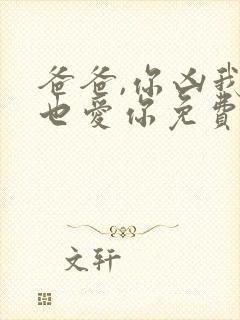 爸爸,你凶我
也爱你免费
文轩